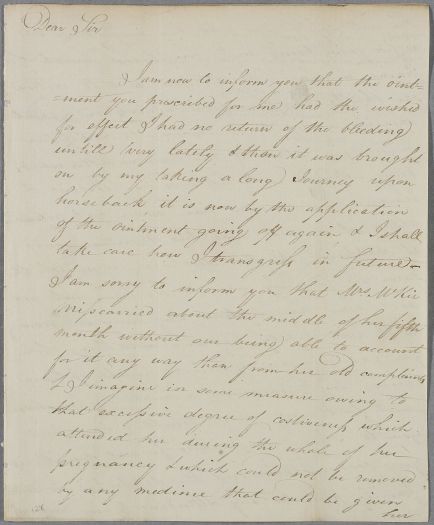 Dear Sir
I am now to inform you that the oint=
=ment you prescribed for me had the wished
for effect I had no return of the bleeding
untill very lately & then it was brought
on by my taking a long Journey upon
horseback it is now by the application
of the ointment going off again & I shall
take care how I transgress in future –
I am sorry to inform you that Mrs McKie
Miscarried about the middle of her fifth
month without our being able to account
for it any way than from her old complaints
& I imagine in some measure owing to
that excessive degree of costiveness which
attended her during the whole of her
pregnancy & which could not be removed
by any medicine that could be given
her